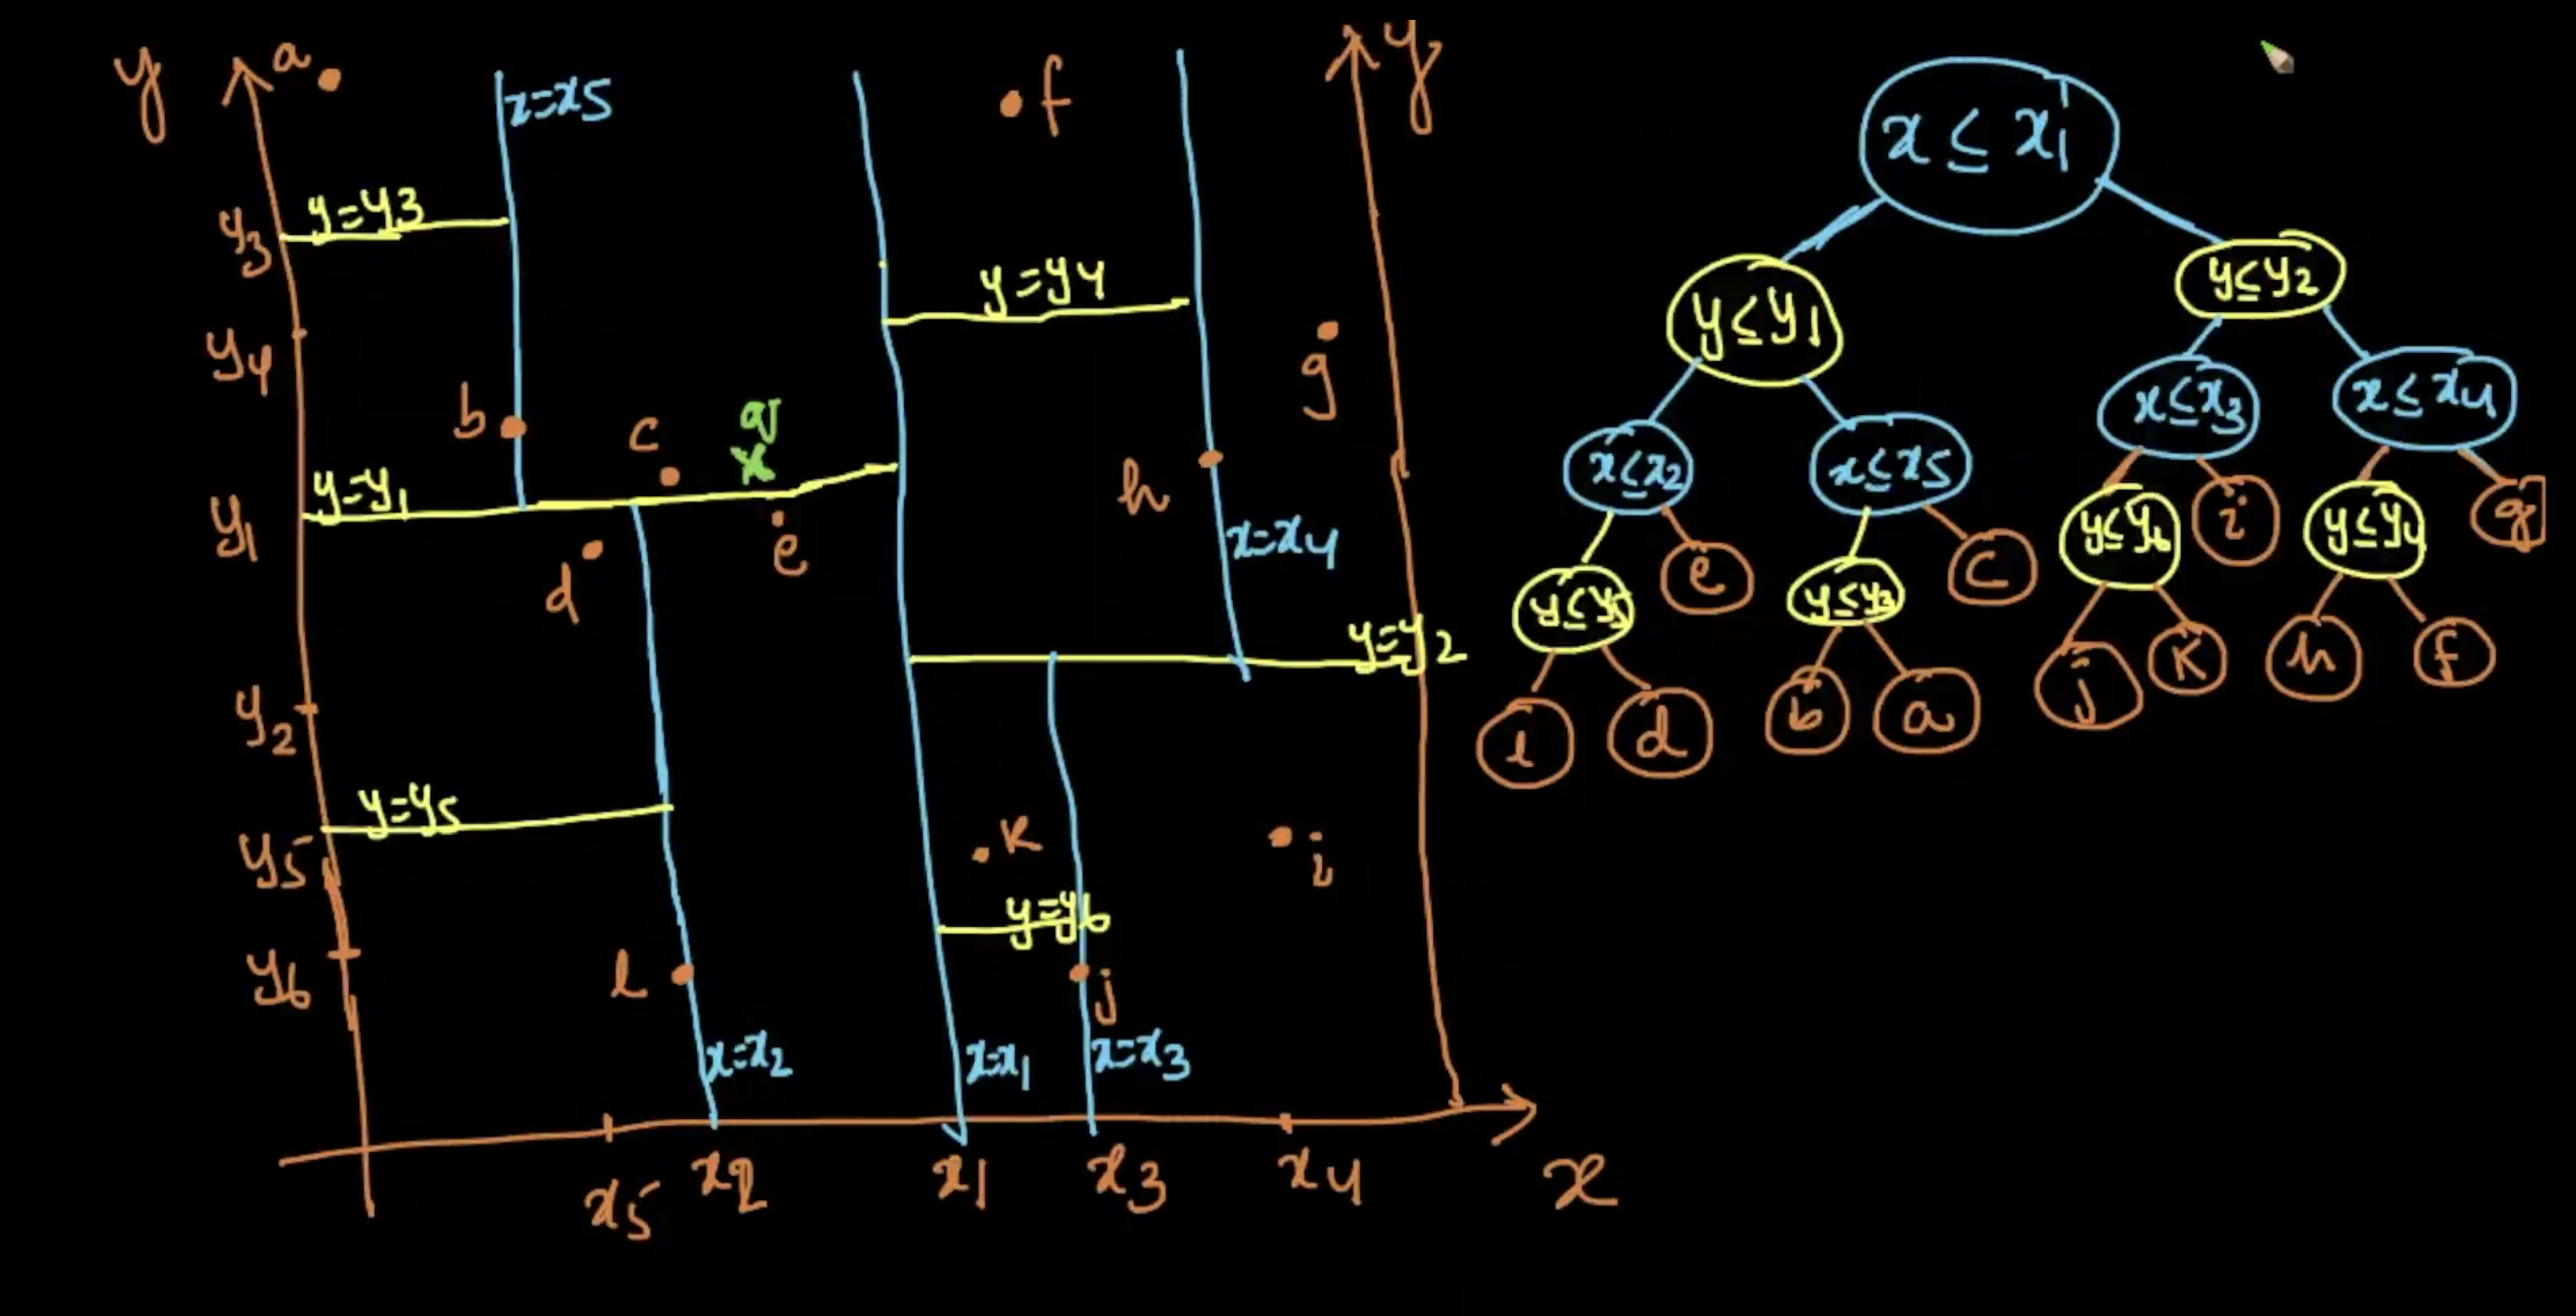 y
a
x=x5
f
y
y=y3
y3
y=y4
y4
g
b
c
q
h
y=y1
y1
d
e
x=x4
y=y2
y2
y=y5
y5
k
i
y=y6
y6
l
j
x=x2
x=x1
x=x3
x5
x2
x1
x3
x4
x
x ≤ x1
y ≤ y1
y ≤ y2
x ≤ x2
x ≤ x5
x ≤ x3
x ≤ x4
y ≤ y5
e
y ≤ y3
c
y ≤ y6
i
y ≤ y4
g
l
d
b
a
j
k
h
f